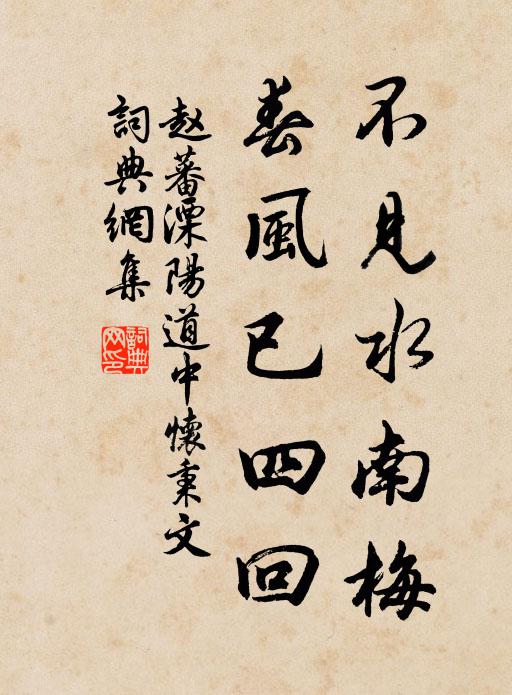 不見水南梅
春風已四回
赵蕃溧陽道中懷秉文
詞典網集
詞典网印